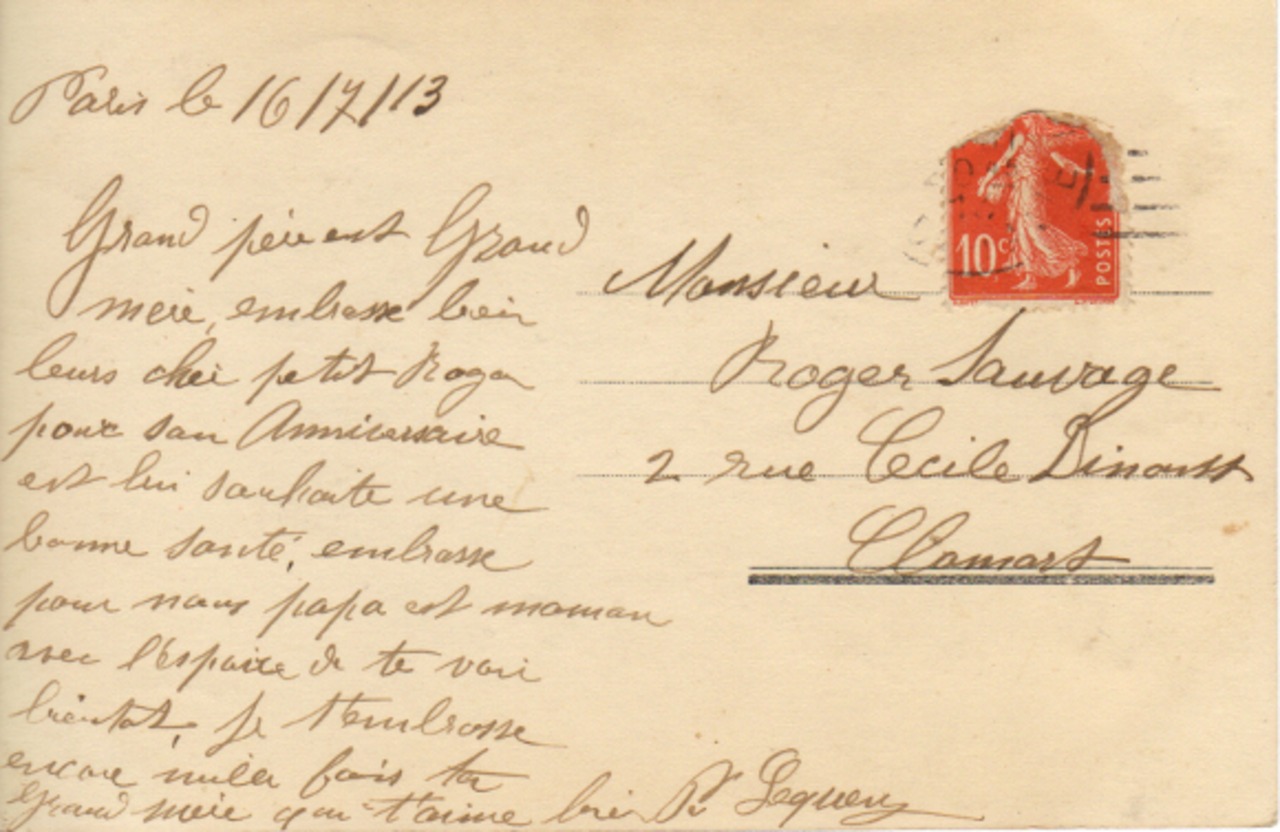 Paris le 16/7/13
Grand pére est Grand
mére, embrasse bien
leurs cher petit Roger
pour son Anniversaire
est lui souhaite une
bonne santé, embrasse
pour nous papa est maman
avec l'éspoire de te voir
bientot, je t'embrasse
encore mille fois ta
Grand mére qui t'aime bien
Monsieur
Roger Sauvage
2 rue Cecile Dinant
Clamart
10c
POSTES